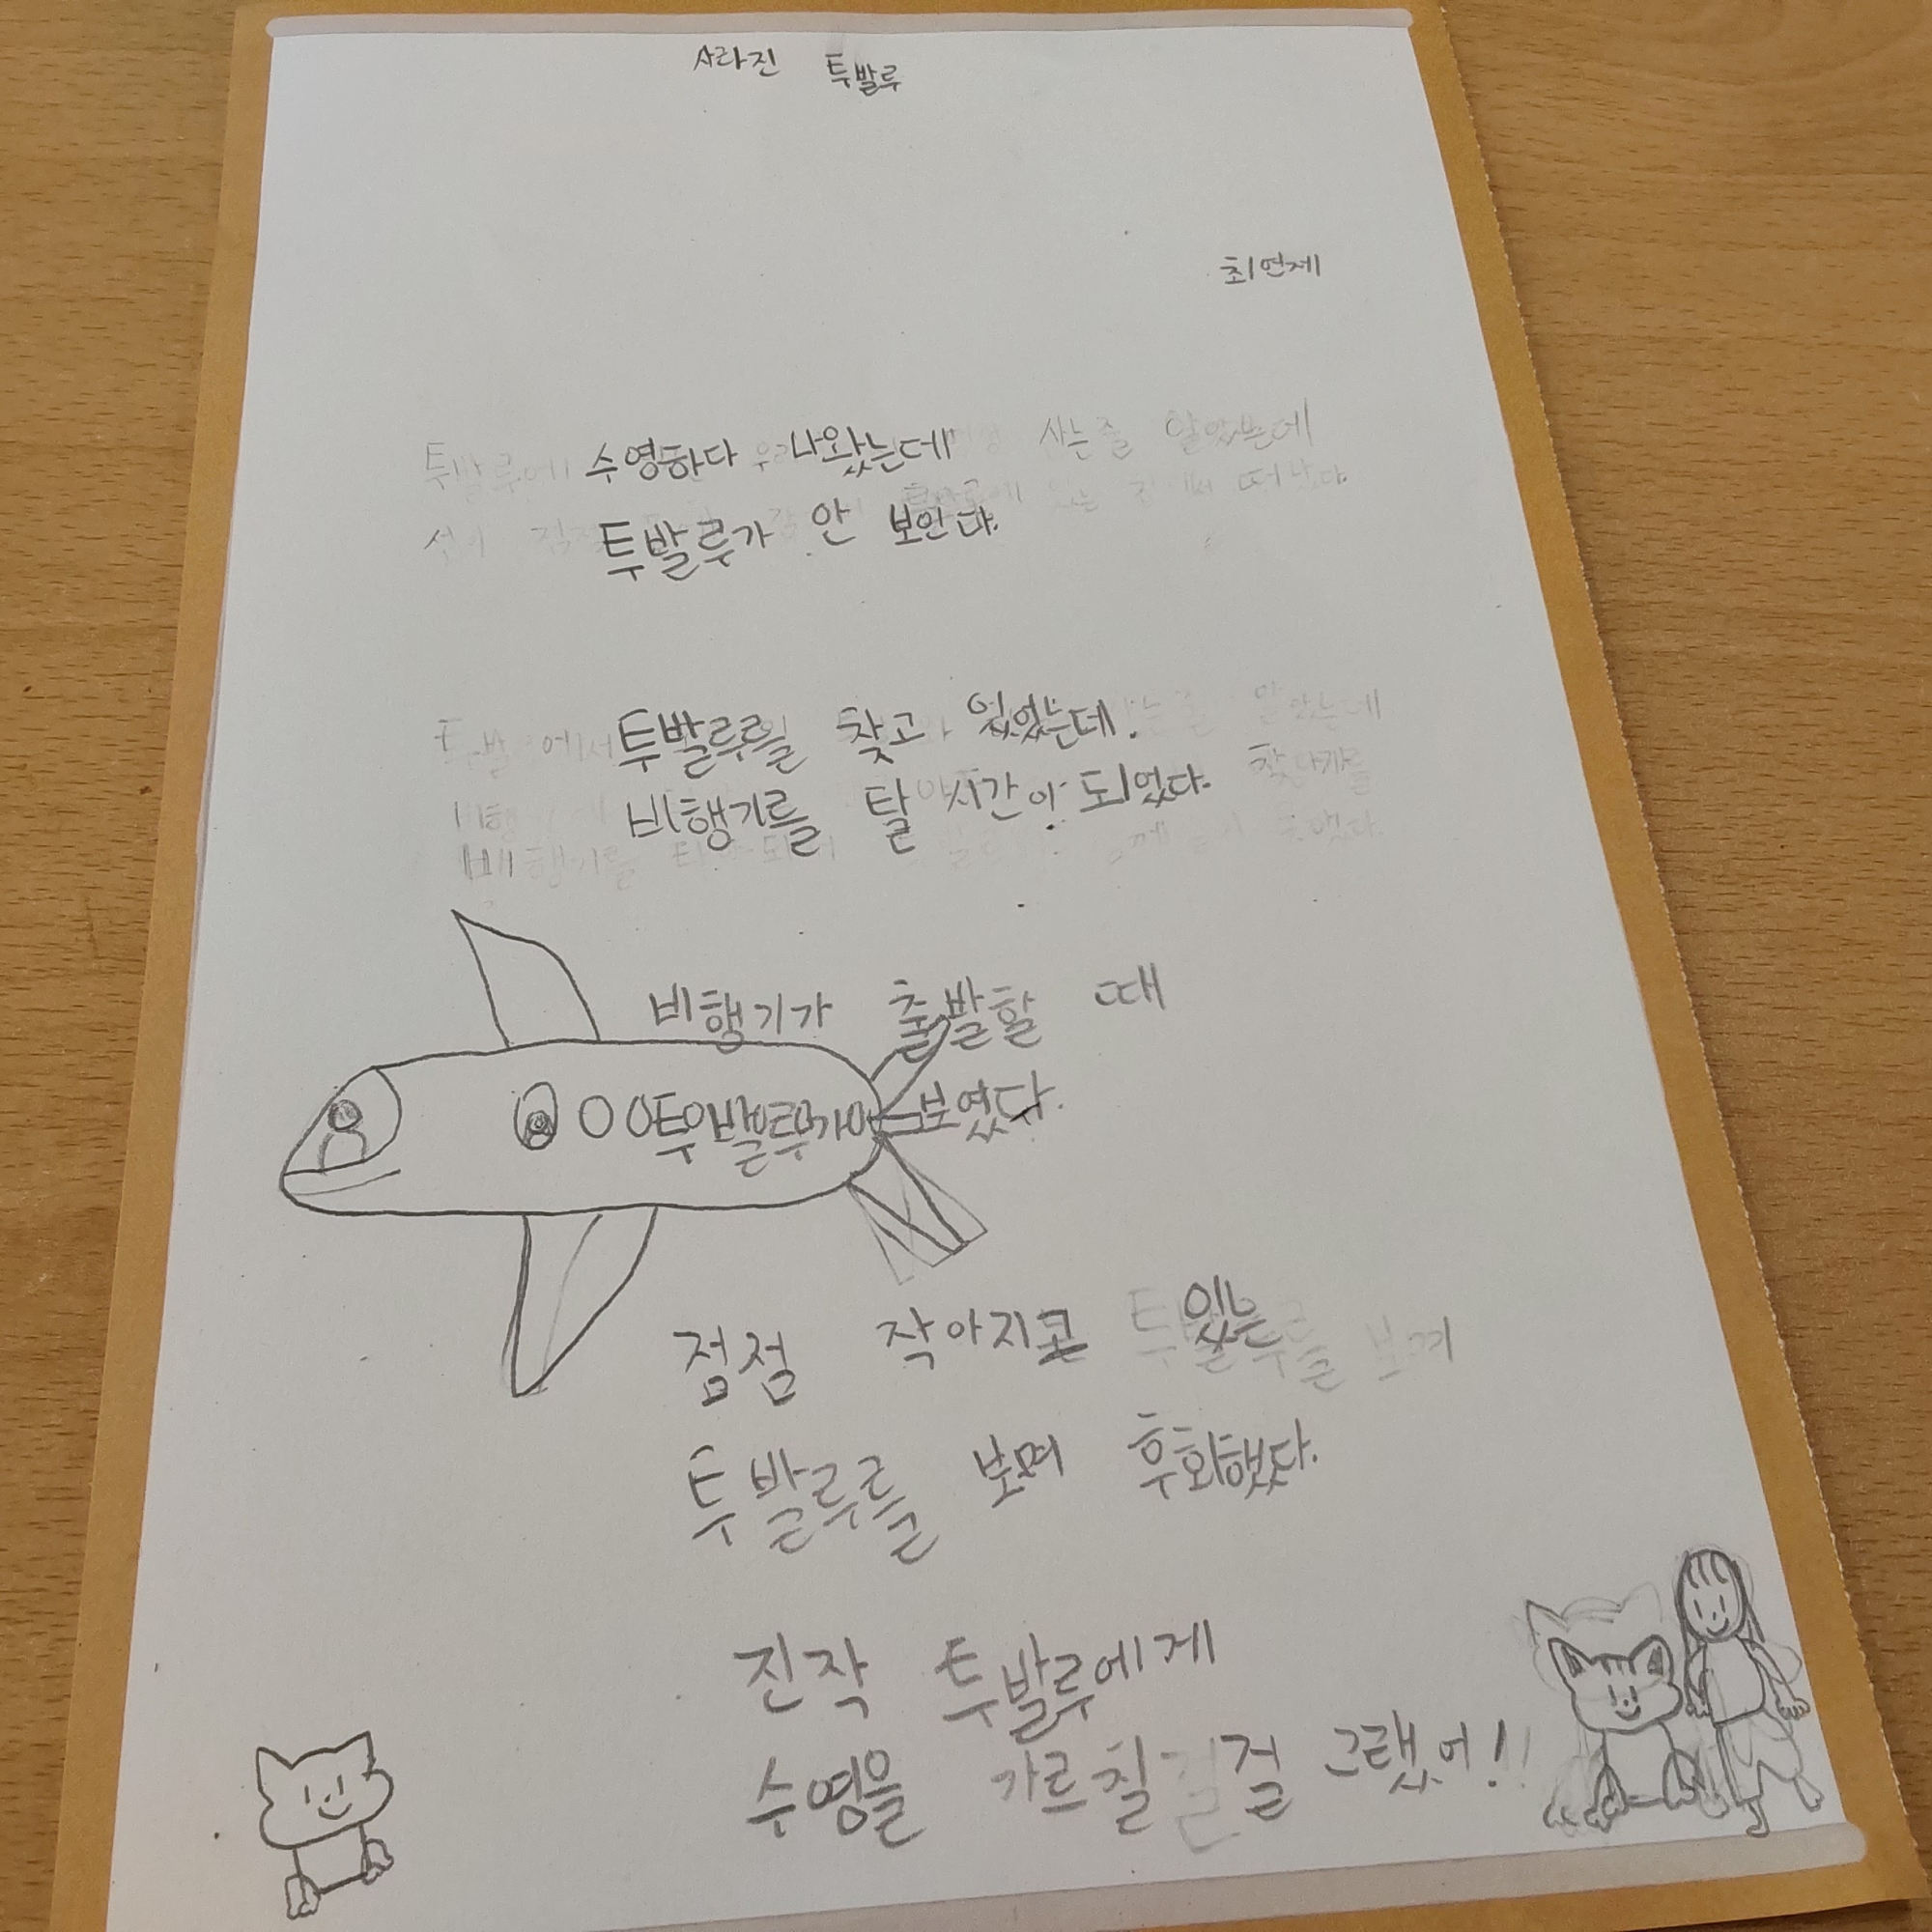 사라진 투발루
최연제
수영하다 나왔는데
투발루가 안 보인다.
투발루를 찾고 있었는데.
비행기를 탈 시간이 되었다.
비행기가 출발할 때
투발루가 보였다.
점점 작아지고 있는
투발루를 보며 후회했다.
진작 투발루에게
수영을 가르칠 걸 그랬어!